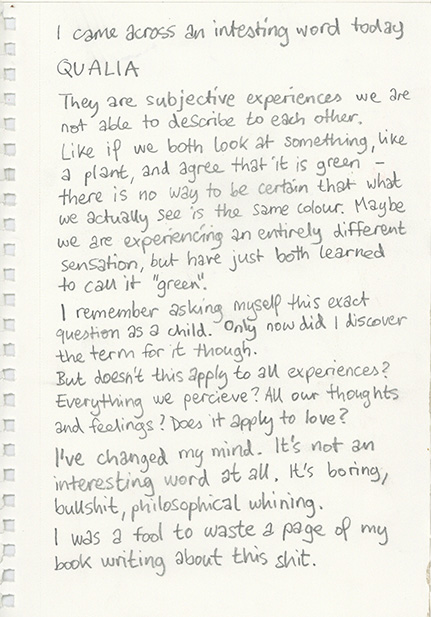 I came across an intesting word today
QUALIA
They are subjective experiences we are
not able to describe to each other.
Like if we both look at something, like
a plant, and agree that it is green –
there is no way to be certain that what
we actually see is the same colour. Maybe
we are experiencing an entirely different
sensation, but have just both learned
to call it "green".
I remember asking myself this exact
question as a child. Only now did I discover
the term for it though.
But doesn't this apply to all experiences?
Everything we percieve? All our thoughts
and feelings? Does it apply to love?
I've changed my mind. It's not an
interesting word at all. It's boring,
bullshit, philosophical whining.
I was a fool to waste a page of my
book writing about this shit.